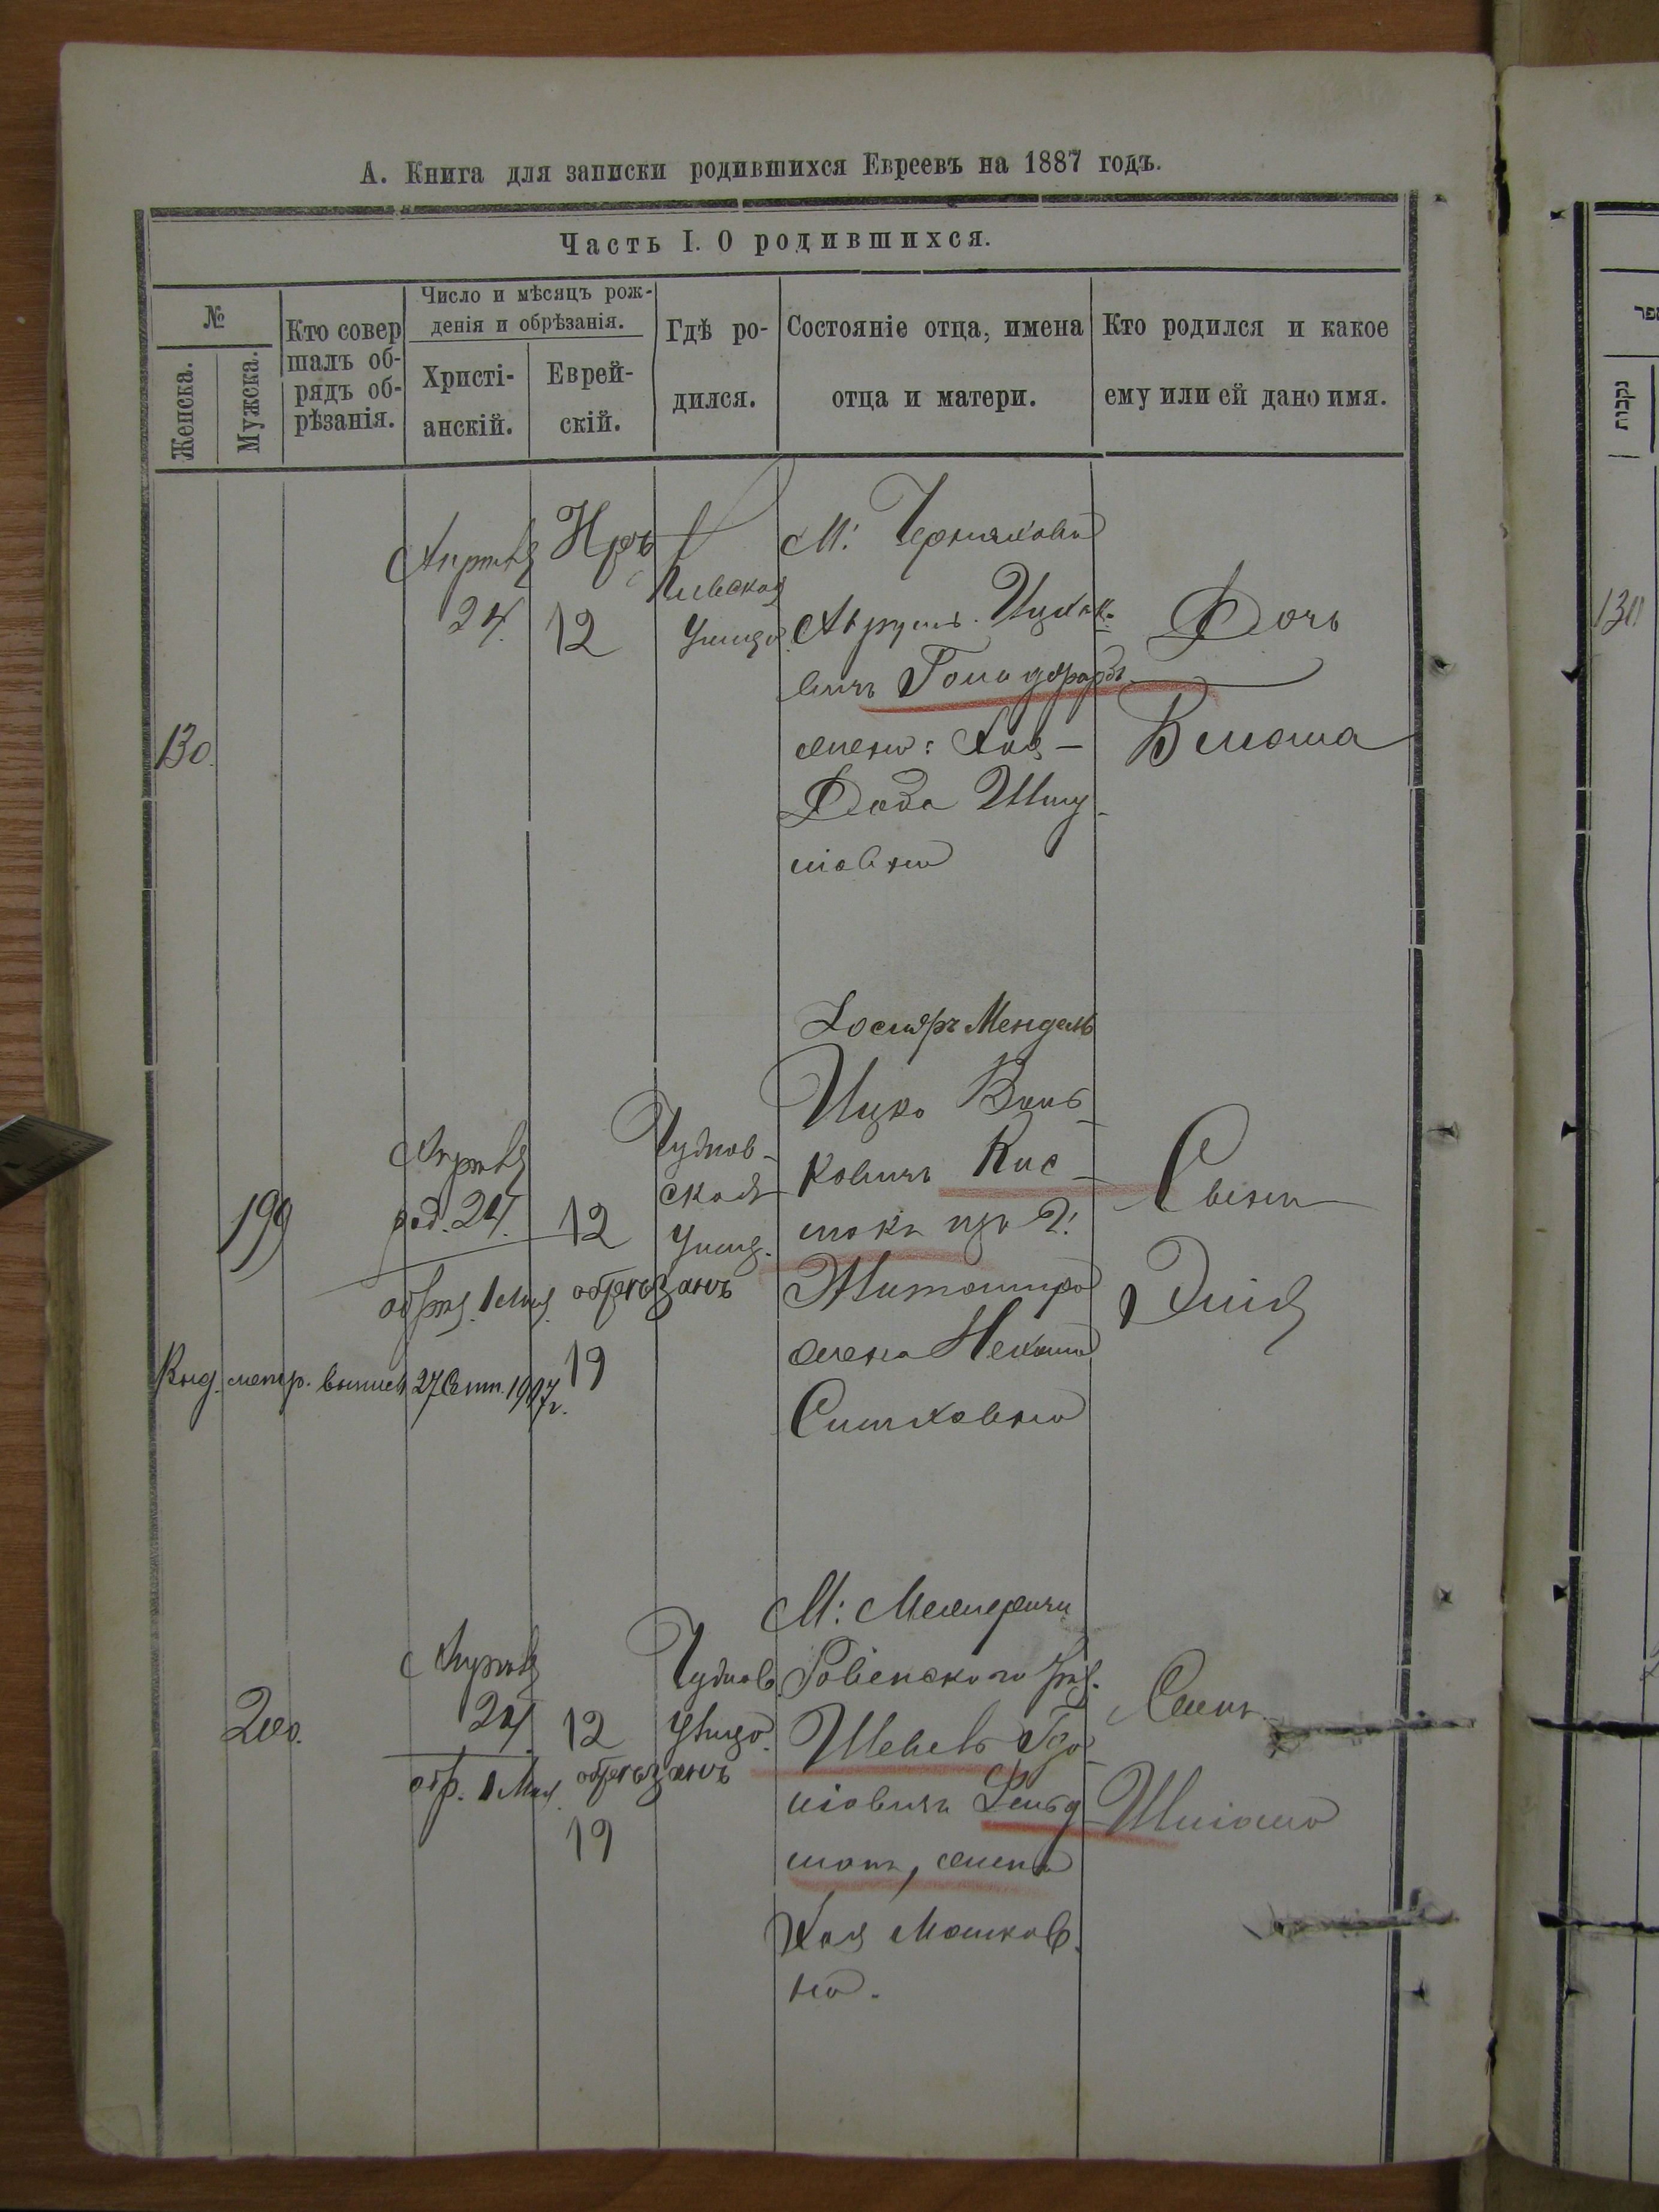 А. Книга для записки родившихся Евреевъ на 1887 годъ.
Часть I. О родившихся.
№
Женска.
Мужска.
Кто совер
шалъ об-
рядъ об-
рѣзанія.
Число и мѣсяцъ рож-
денія и обрѣзанія.
Христі-
анскій.
Еврей-
скій.
Гдѣ ро-
дился.
Состояніе отца, имена
отца и матери.
Кто родился и какое
ему или ей дано имя.
130.
Апрѣля
24.
Иръ
12
Кіевская
Улица.
М. Черняхова
Аврумъ Ицхак-
вичъ Гольдфарбъ
жена: Хая-
Шму-
ліовна
Дочь
Блюма
199
Апрѣля
род. 24.
обрѣз. 1 Мая.
12
обрѣзанъ
19
Чуднов-
ская
Улиц.
Мендель
Ицко Вель-
ковичъ Кис-
изъ г.
Житомира
жена Нехама
Сынъ
Элія
Выд. метр. выпись 27 Сент. 1907 г.
200.
Апрѣля
24
обр. 1 Мая.
12
обрѣзанъ
19
Чуднов.
Улица.
М. Межиричи
Ровенского уѣз.
Шевель
ліовичъ Фельд-
манъ, жена
Хая Мошков-
на.
Сынъ
Шліома
נקבות
130